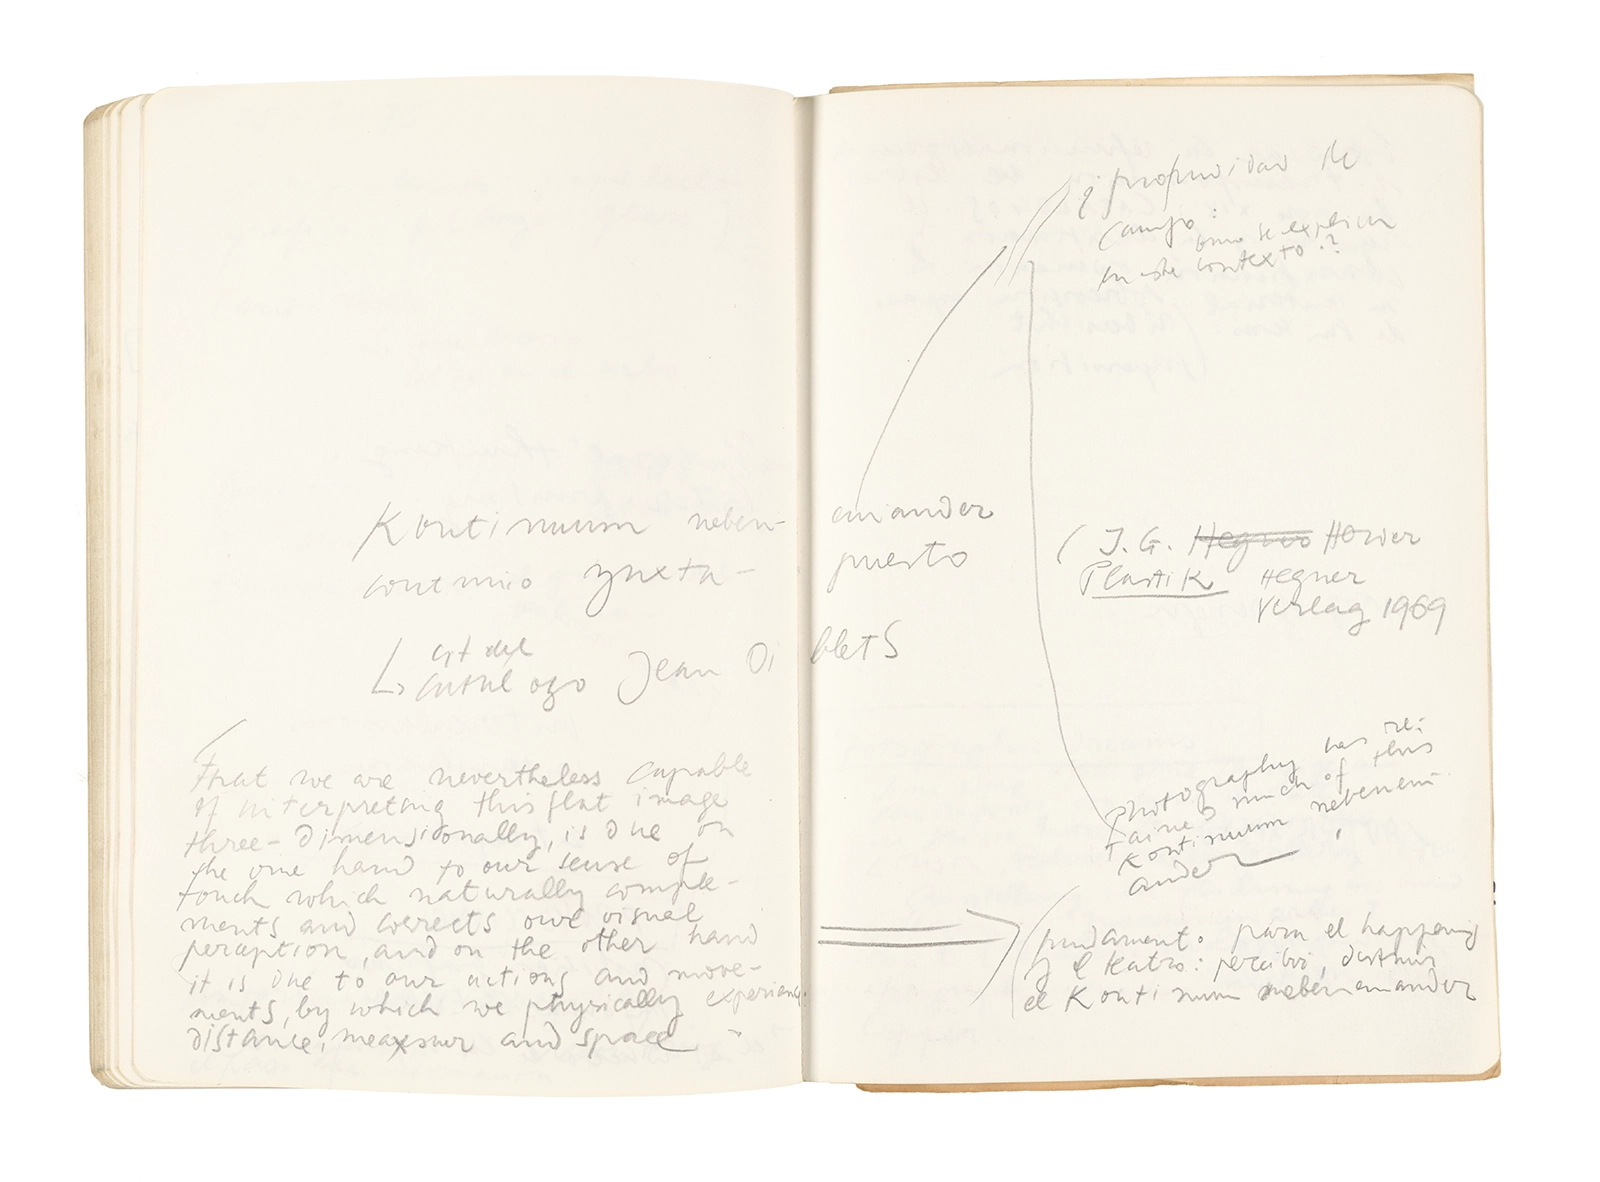 ¿propiedad de
campo:
como se explica
en este contexto?
Kontinuum neben- einander
continuo yuxta- puesto
(J.G. Hegner Herder
Plastik Hegner
Verlag 1969
cit del
catálogo Jean Dibbets
That we are nevertheless capable
of interpreting this flat image
three-dimensionally, is due on
the one hand to our sense of
touch which naturally comple-
ments and corrects our visual
perception, and on the other hand
it is due to our actions and move-
ments, by which we physically experience
distance, measur and space"
photography has re-
tained much of this
Kontinuum nebenein-
ander
fundamento para el happening
y el teatro: percibir,
el Kontinuum nebeneinander